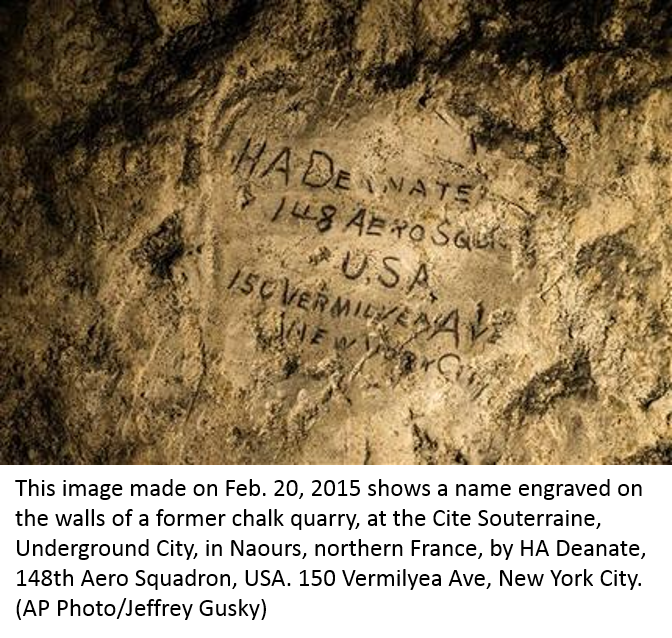 HA DEANATE
148 AERO SQU
U.S.A.
150 VERMILYEA AVE
NEW YORK CITY
This image made on Feb. 20, 2015 shows a name engraved on
the walls of a former chalk quarry, at the Cite Souterraine,
Underground City, in Naours, northern France, by HA Deanate,
148th Aero Squadron, USA. 150 Vermilyea Ave, New York City.
(AP Photo/Jeffrey Gusky)